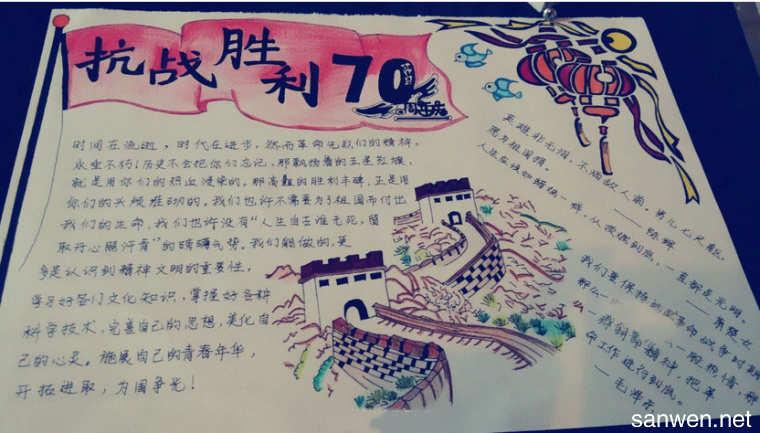 抗战胜利70
周年庆
时间在流逝，时代在进步，然而革命先驱们的精神，
永垂不朽！历史不会把你们忘记，那飘扬着的五星红旗，
就是用你们的热血浸染的。那高矗的胜利丰碑，正是用
你们的头颅堆砌的。我们也许不需要为了祖国而付出
我们的生命，我们也许没有“人生自古谁无死，留
取丹心照汗青”的磅礴气势。我们能做的，更
多是认识到精神文明的重要性，
学习好各门文化知识，掌握好各种
科学技术，完善自己的思想，美化自
己的心灵。施展自己的青春年华，
开拓进取，为国争光！
英雄非无泪，不洒敌人前。男儿七尺躯，
愿为祖国捐。
——陈辉
人生应该如蜡烛一样，从顶燃到底，一直都是光明。
——萧楚女
我们要保持过去革命战争时期
那么一股热情，
一种拼命精神，把革
命工作进行到底。
——毛泽东
sanwen.net